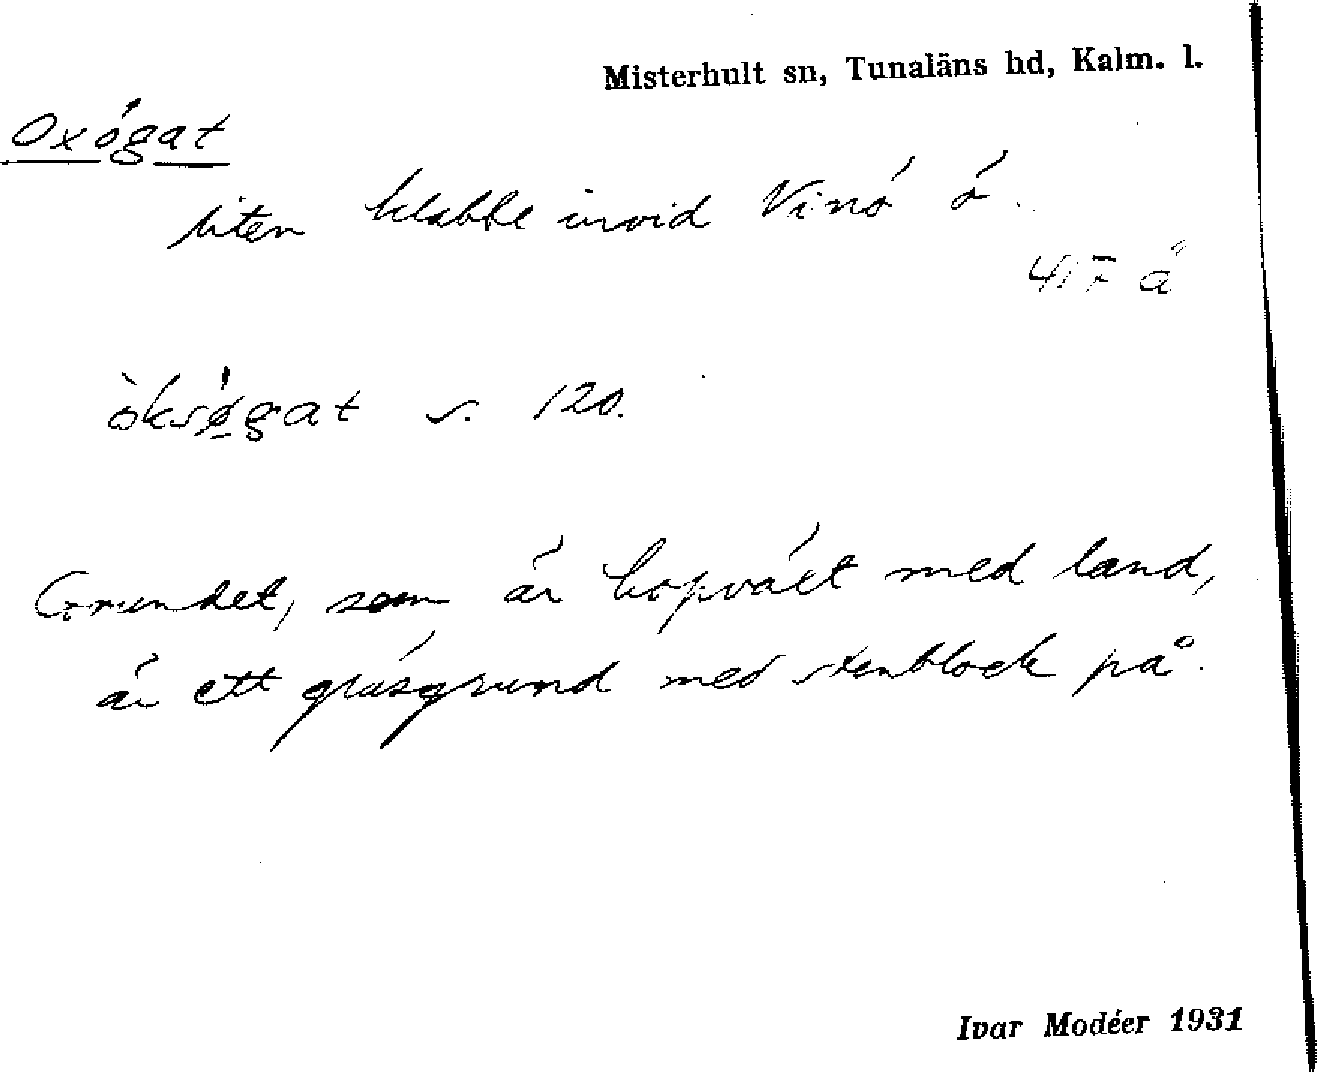 Misterhult sn, Tunaläns hd, Kalm. l.
Oxögat
liten klabbe invid Vinö ö.
4 i 7 å
òksøgat s. 120.
Grundet, som är hopväxt med land,
är ett gräsgrund med stenblock på.
Ivar Modéer 1931